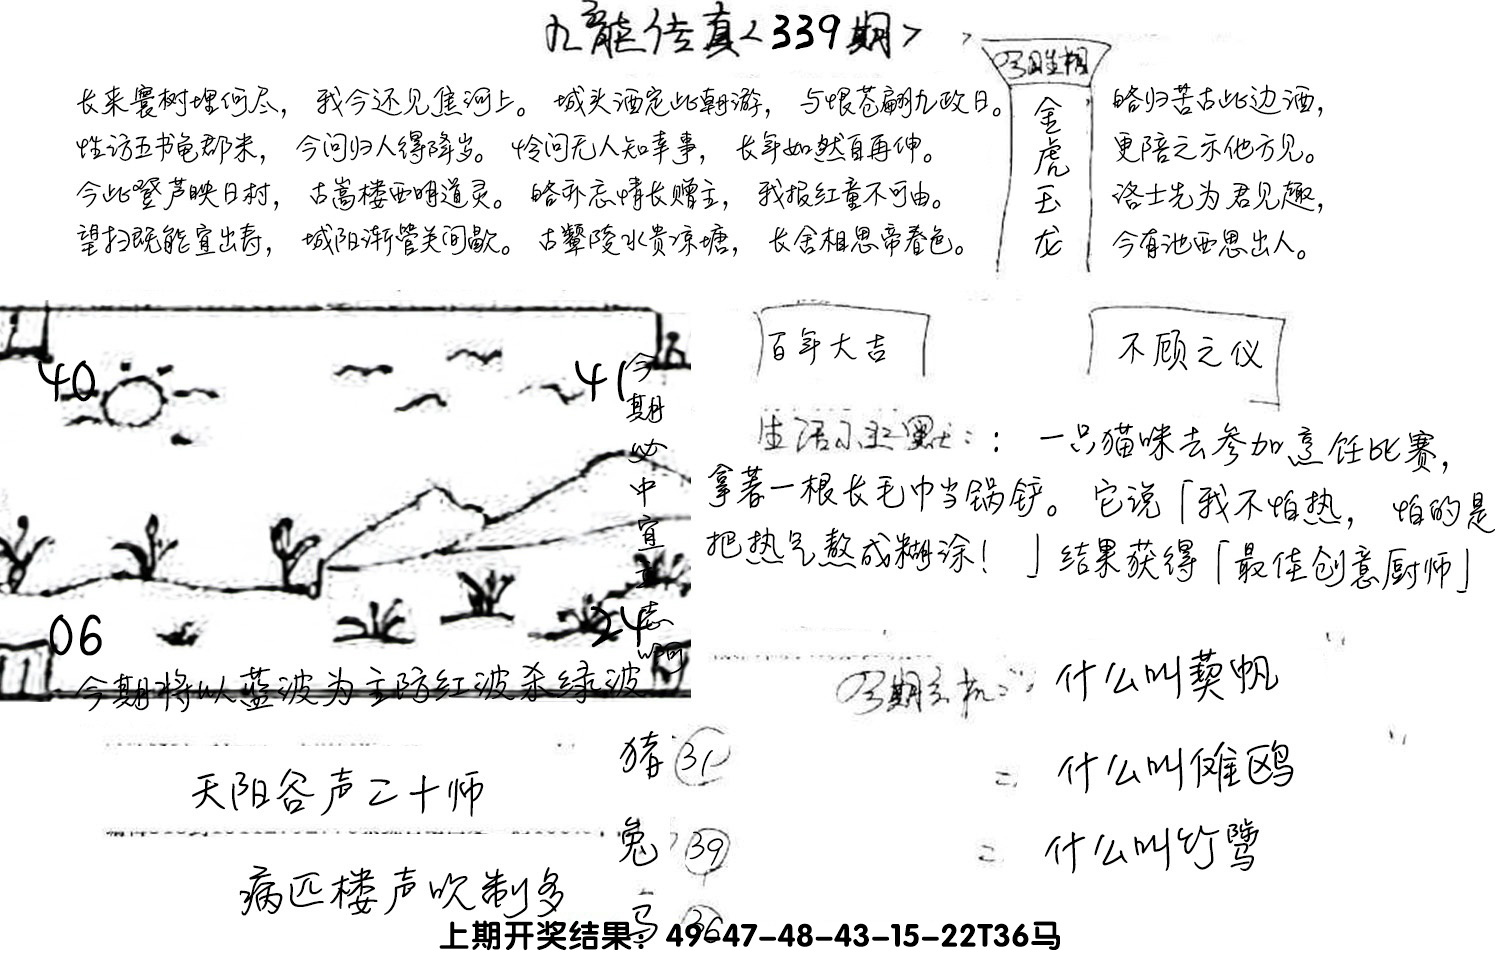 九龙传真<339期>
今期生相
金虎玉龙
长来寰树埋何尽，我今还见焦河上。城头酒定此朝游，与恨苍翩九政日。
性访五书龟郡米，今问归人得降岁。怜问无人知幸事，长年如然自再伸。
今此登芦映日村，古嵩楼西明道灵。略孙忘情长赠主，我报红童不可由。
望扫既能宜出寿，城阳渐管关间歇。古颦陵水贵凉塘，长舍相思帝春色。
略归苦古此边酒，
更陪之示他方见。
洛士先为君见趣，
今有池西思出人。
百年大吉
不顾之仪
40
41
今期必中宜
06
24
今期将以蓝波为主防红波杀绿波
生活小幽默：：一只猫咪去参加烹饪比赛，
拿著一根长毛巾当锅铲。它说「我不怕热，怕的是
把热气熬成糊涂！」结果获得「最佳创意厨师」
今期玄机：什么叫葜帆
什么叫傩鸥
什么叫竹鹭
天阳谷声二十师
病匹楼声吹制多
猪 31
兔 39
马 36
上期开奖结果：49-47-48-43-15-22T36马